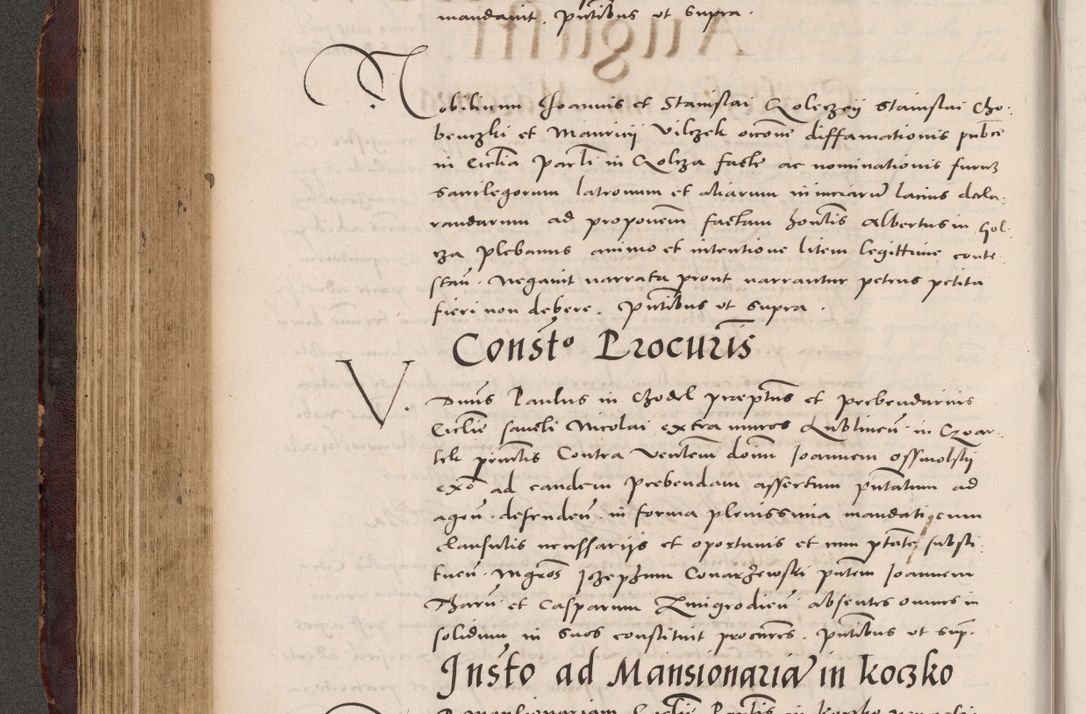 mandavit. Pntibus ut supra.
Nobilium Joannis et Stanislai Goleczcij Stanislai Cho-
benczki et Mauricij Vilczek diffamationis publce
in Ecclia Parli in Golcza facte ac nominationis furum
sacrilegorum latronum et aliarum iniuriaru latius decla-
randarum ad proponem factam Albertus in Gol-
cza Plebanus animo et intentione litem legittime conte-
stan. Negavit narrata prout narrantur petens petita
fieri non debere. Pntibus ut supra.
Consto Procuris
V. Dnus Paulus in Chodel praeptus et prebendarius
Ecclie sancti Nicolai extra muros Lublineñ in Czwar-
tek Contra Venlem domn Joannem Ossmolskij
ad eandem Prebendam assertum putatum ad
agen. defenden. in forma plenissima mandati cum
clausulis necessarijs et oportunis et cum ptate substi-
tuen. Mgros Jozephum Conarzewski pntem Joannem
et Casparum Zmigrodien absentes omnes in
solidum in suos constituit procures. Pntibus ut sup.
Insto ad Mansionaria in Koczko